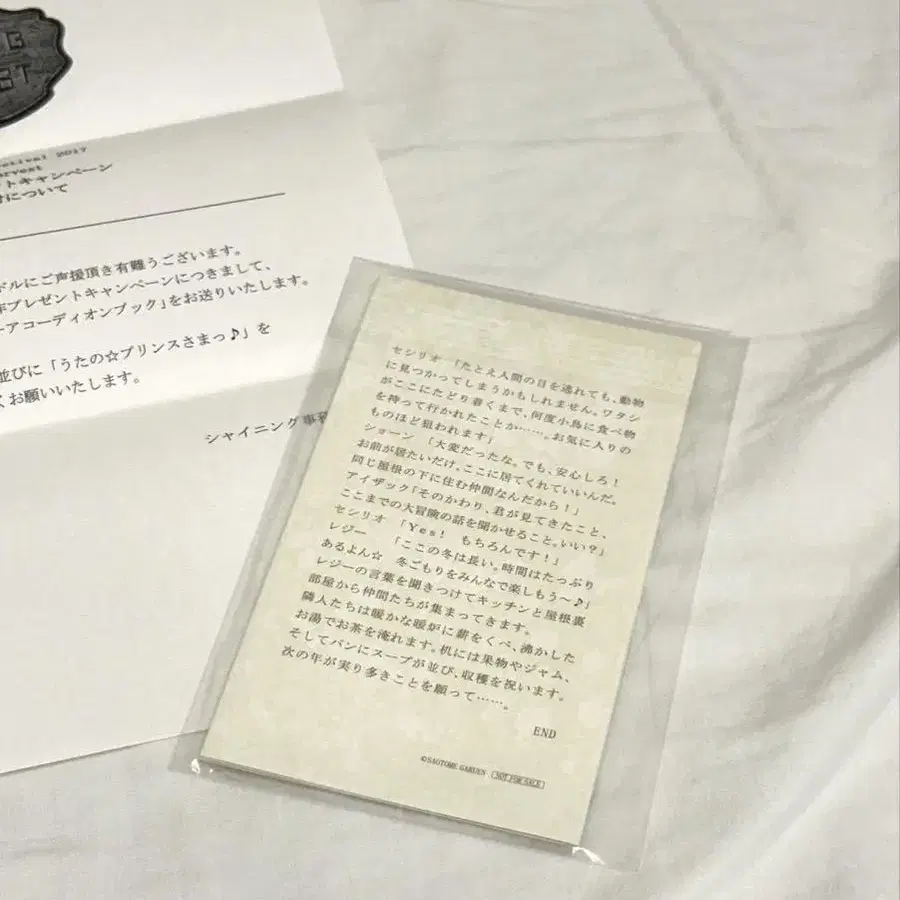 2017
トキャンペーン
について
ドルにご声援頂き有難うございます。
年プレゼントキャンペーンにつきまして、
アコーディオンブック」をお送りいたします。
並びに「うたの☆プリンスさまっ♪」を
お願いいたします。
シャイニング事務
セシリオ 「たとえ人間の目を逃れても、動物
に見つかってしまうかもしれません。ワタシ
がここにたどり着くまで、何度小鳥に食べ物
を持って行かれたことか……。お気に入りの
ものほど狙われます」
ショーン 「大変だったな。でも、安心しろ!
お前が居たいだけ、ここに居てくれていいんだ。
同じ屋根の下に住む仲間なんだから!」
アイザック「そのかわり、君が見てきたこと、
ここまでの大冒険の話を聞かせること。いい?」
セシリオ 「Yes! もちろんです!」
レジー 「ここの冬は長い。時間はたっぷり
あるよん☆ 冬ごもりをみんなで楽しもう~♪」
レジーの言葉を聞きつけてキッチンと屋根裏
部屋から仲間たちが集まってきます。
隣人たちは暖かな暖炉に薪をくべ、沸かした
お湯でお茶を淹れます。机には果物やジャム、
そしてパンにスープが並び、収穫を祝います。
次の年が実り多きことを願って……。
END
©SAOTOME GARDEN NOT FOR SALE